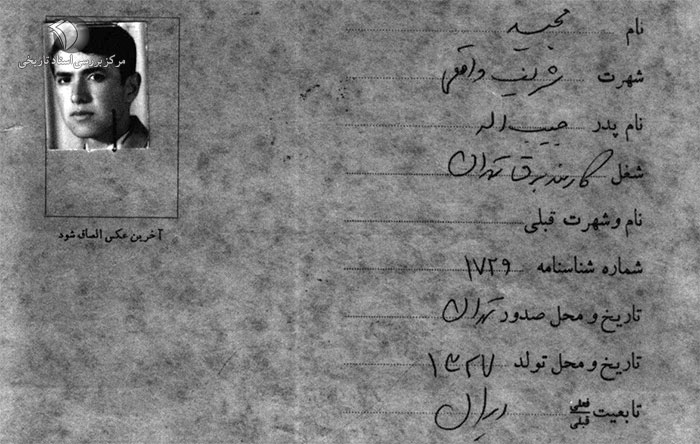 مرکز بررسی اسناد تاریخی
نام مجید
شهرت شریف واقفی
نام پدر حبیب اله
شغل کارمند برق تهران
نام و شهرت قبلی
شماره شناسنامه ۱۷۲۹
تاریخ و محل صدور تهران
تاریخ و محل تولد ۱۳۲۷
تابعیت فعلی قبلی ایران
آخرین عکس الصاق شود